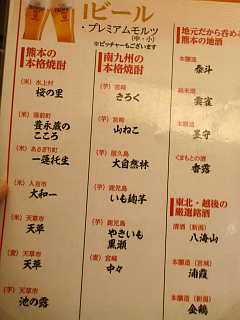 ビール
・プレミアムモルツ
(中・小)
※ピッチャーもございます
熊本の
本格焼酎
(米) 水上村
桜の里
(米) 湯前町
豊永蔵の
こころ
(米) あさぎり町
一蓮托生
(米) 人吉市
大和一
(米) 天草市
天草
(麦) 天草市
天草
(芋) 天草市
池の露
南九州の
本格焼酎
(芋) 宮崎
きろく
(芋) 宮崎
山ねこ
(芋) 屋久島
大自然林
(芋) 鹿児島
いも麹芋
(芋) 鹿児島
やきいも
黒瀬
(麦) 宮崎
中々
地元だから呑める
熊本の地酒
本醸造
泰斗
純米酒
本醸造
くまもとの酒
香露
東北・越後の
厳選銘酒
清酒 (新潟)
八海山
本醸造 (宮城)
浦霞
本醸造 (新潟)
金鶴